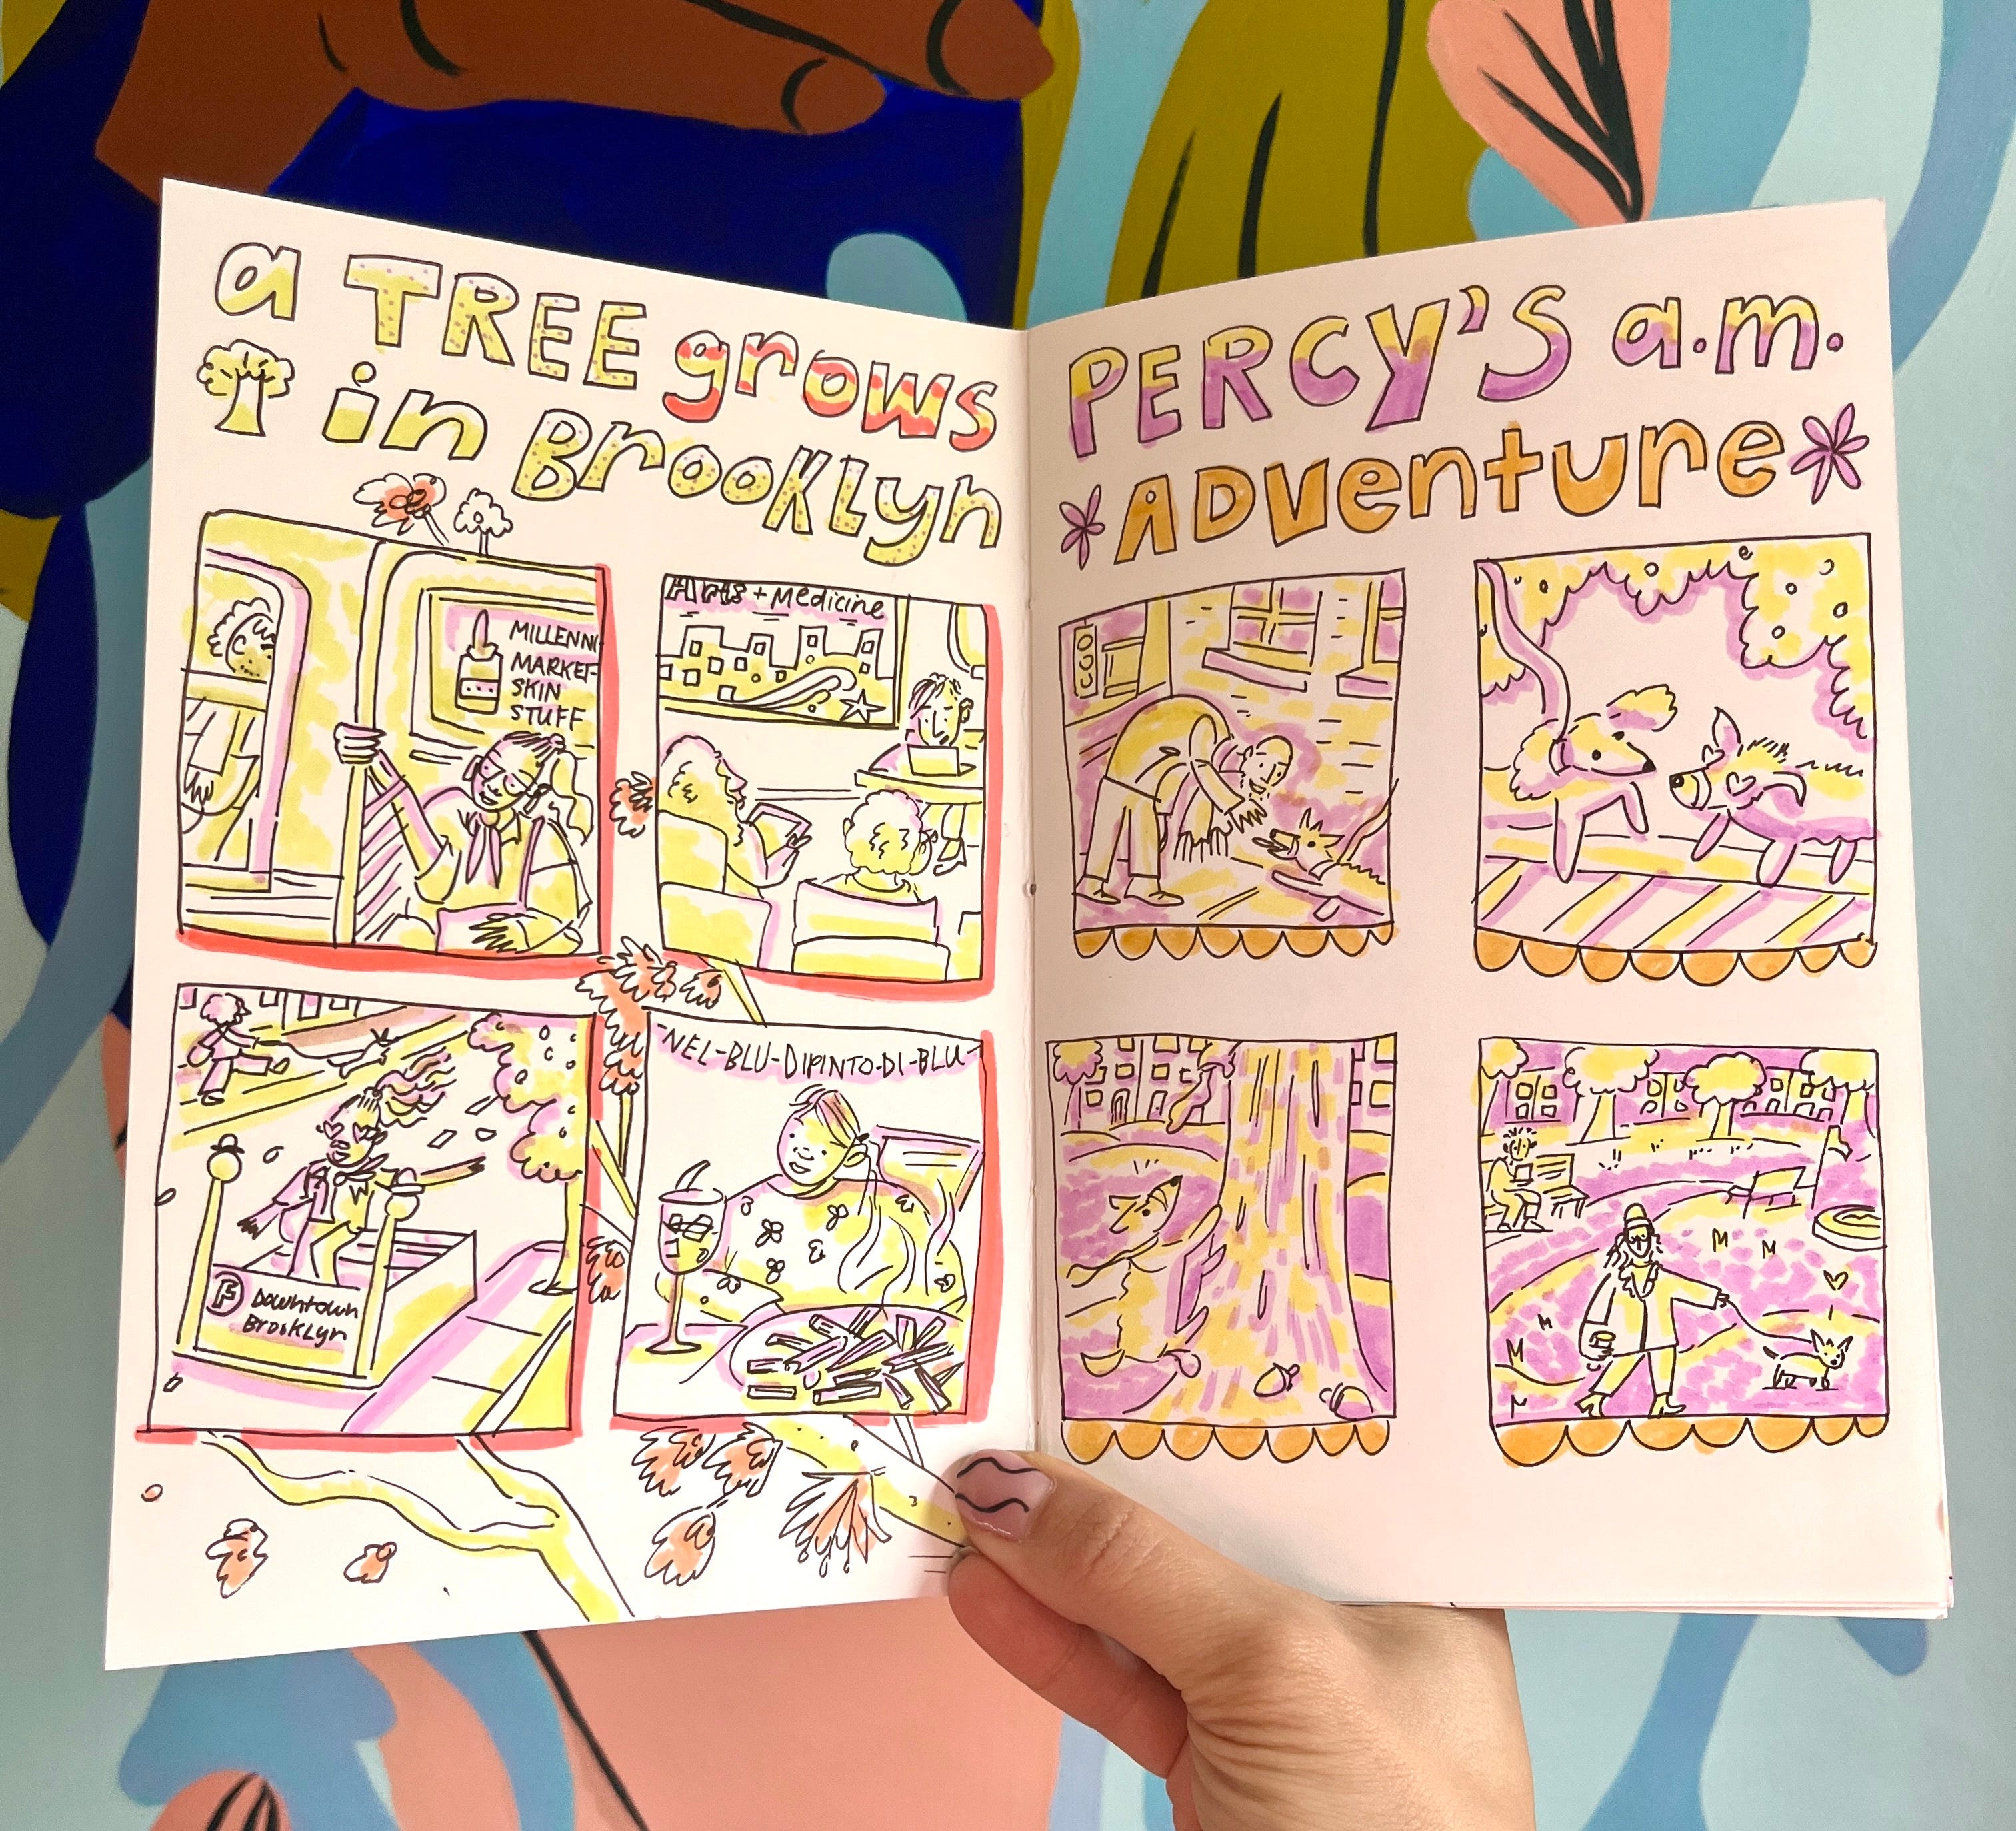 a TREE grows
in Brooklyn
MILLENNI
MARKET-
SKIN
STUFF
Arts + Medicine
W
F Downtown
Brooklyn
-NEL-BLU-DIPINTO-DI-BLU-
PERCY'S a.m.
ADVenture